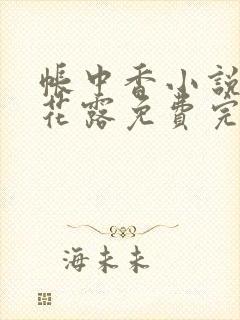 帐中香小說
花露免費完
海未未